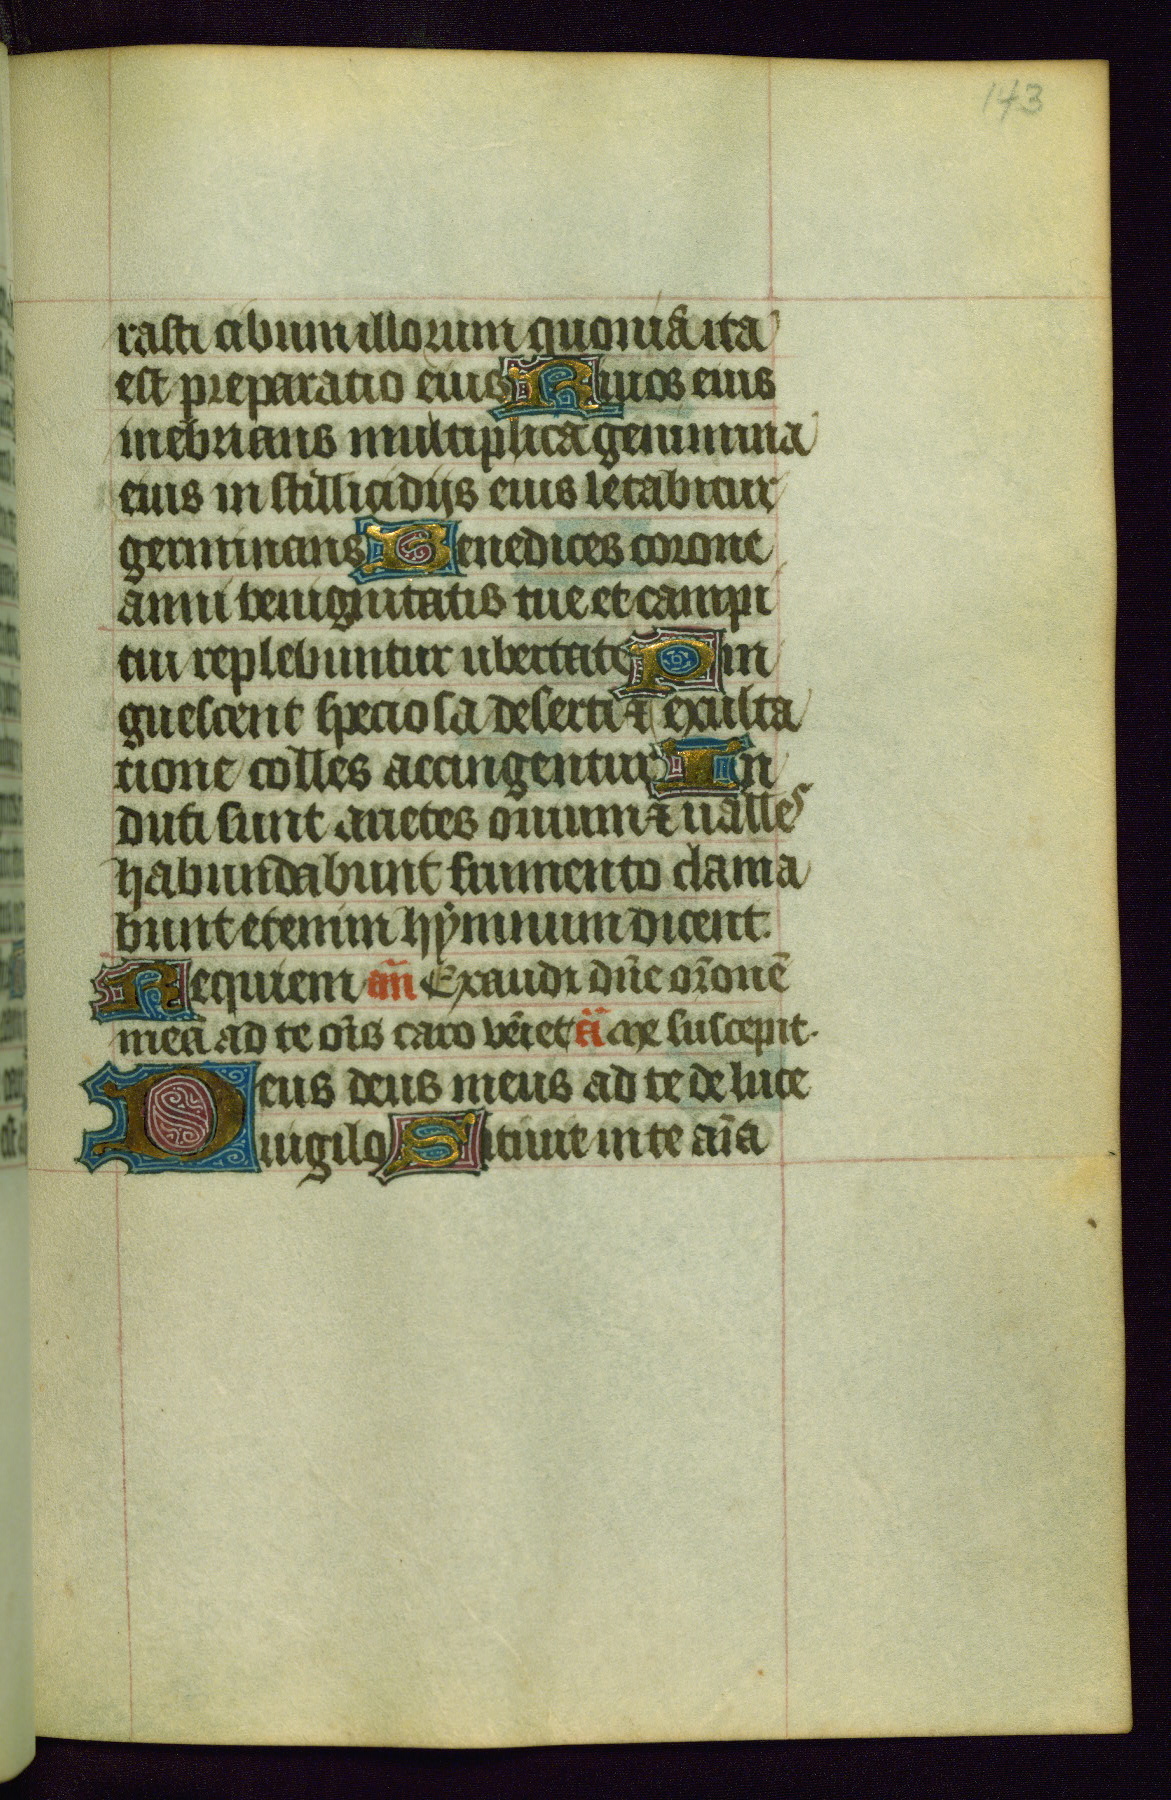 143
rasti cibum illorum quoniā ita
est preparatio eius Riuos eius
inebrians multiplica genimina
eius in stillicidijs eius letabitur
germinans Benedices corone
anni benignitatis tue et campi
tui replebuntur ubertate Pin
guescent speciosa deserti ⁊ exulta
tione colles accingentur In
duti sunt arietes ouium ⁊ ualles
habundabunt frumento clama
bunt etenim hẏmnum dicent.
Requiem añ Exaudi dñe or̄onē
meā ad te oīs caro vēiet ā Me suscepit.
Deus deus meus ad te de luce
uigilo Sitiuit in te aīa